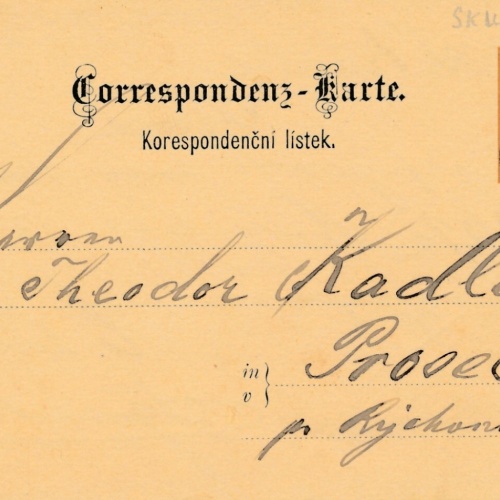 SKU
Correspondenz-Karte.
Korespondenční lístek.
Herren
Theodor Kadle
in
v
Prosec
pr Rychom